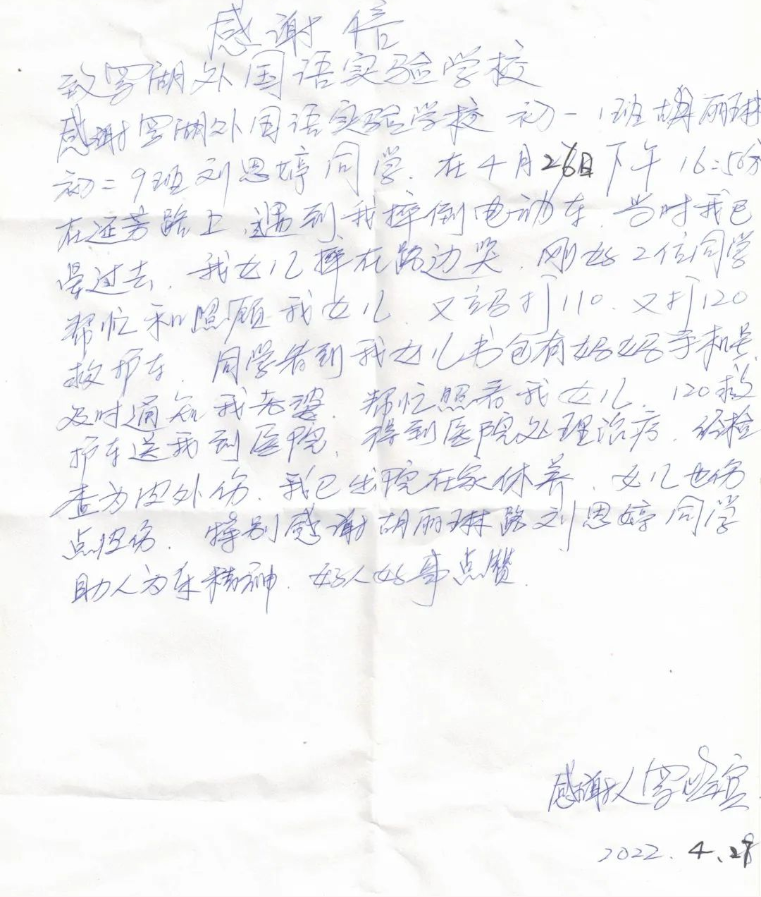 感谢信
致罗湖外国语实验学校
感谢罗湖外国语实验学校 初一1班胡丽琳
初二9班刘思婷同学.在4月26日下午16:50分
在延芳路上 遇到我摔倒电动车.当时我已
晕过去.我女儿摔在路边哭.刚好2位同学
帮忙和照顾我女儿.又立马打110.又打120
救护车.同学看到我女儿书包有妈妈手机号.
及时通知我老婆.帮忙照看我女儿.120救
护车送我到医院.得到医院处理治疗.经检
查为皮外伤.我已出院在家休养.女儿也伤
点皮伤.特别感谢胡丽琳 刘思婷同学
助人为乐精神.好人好事点赞.
感谢人
2022.4.28